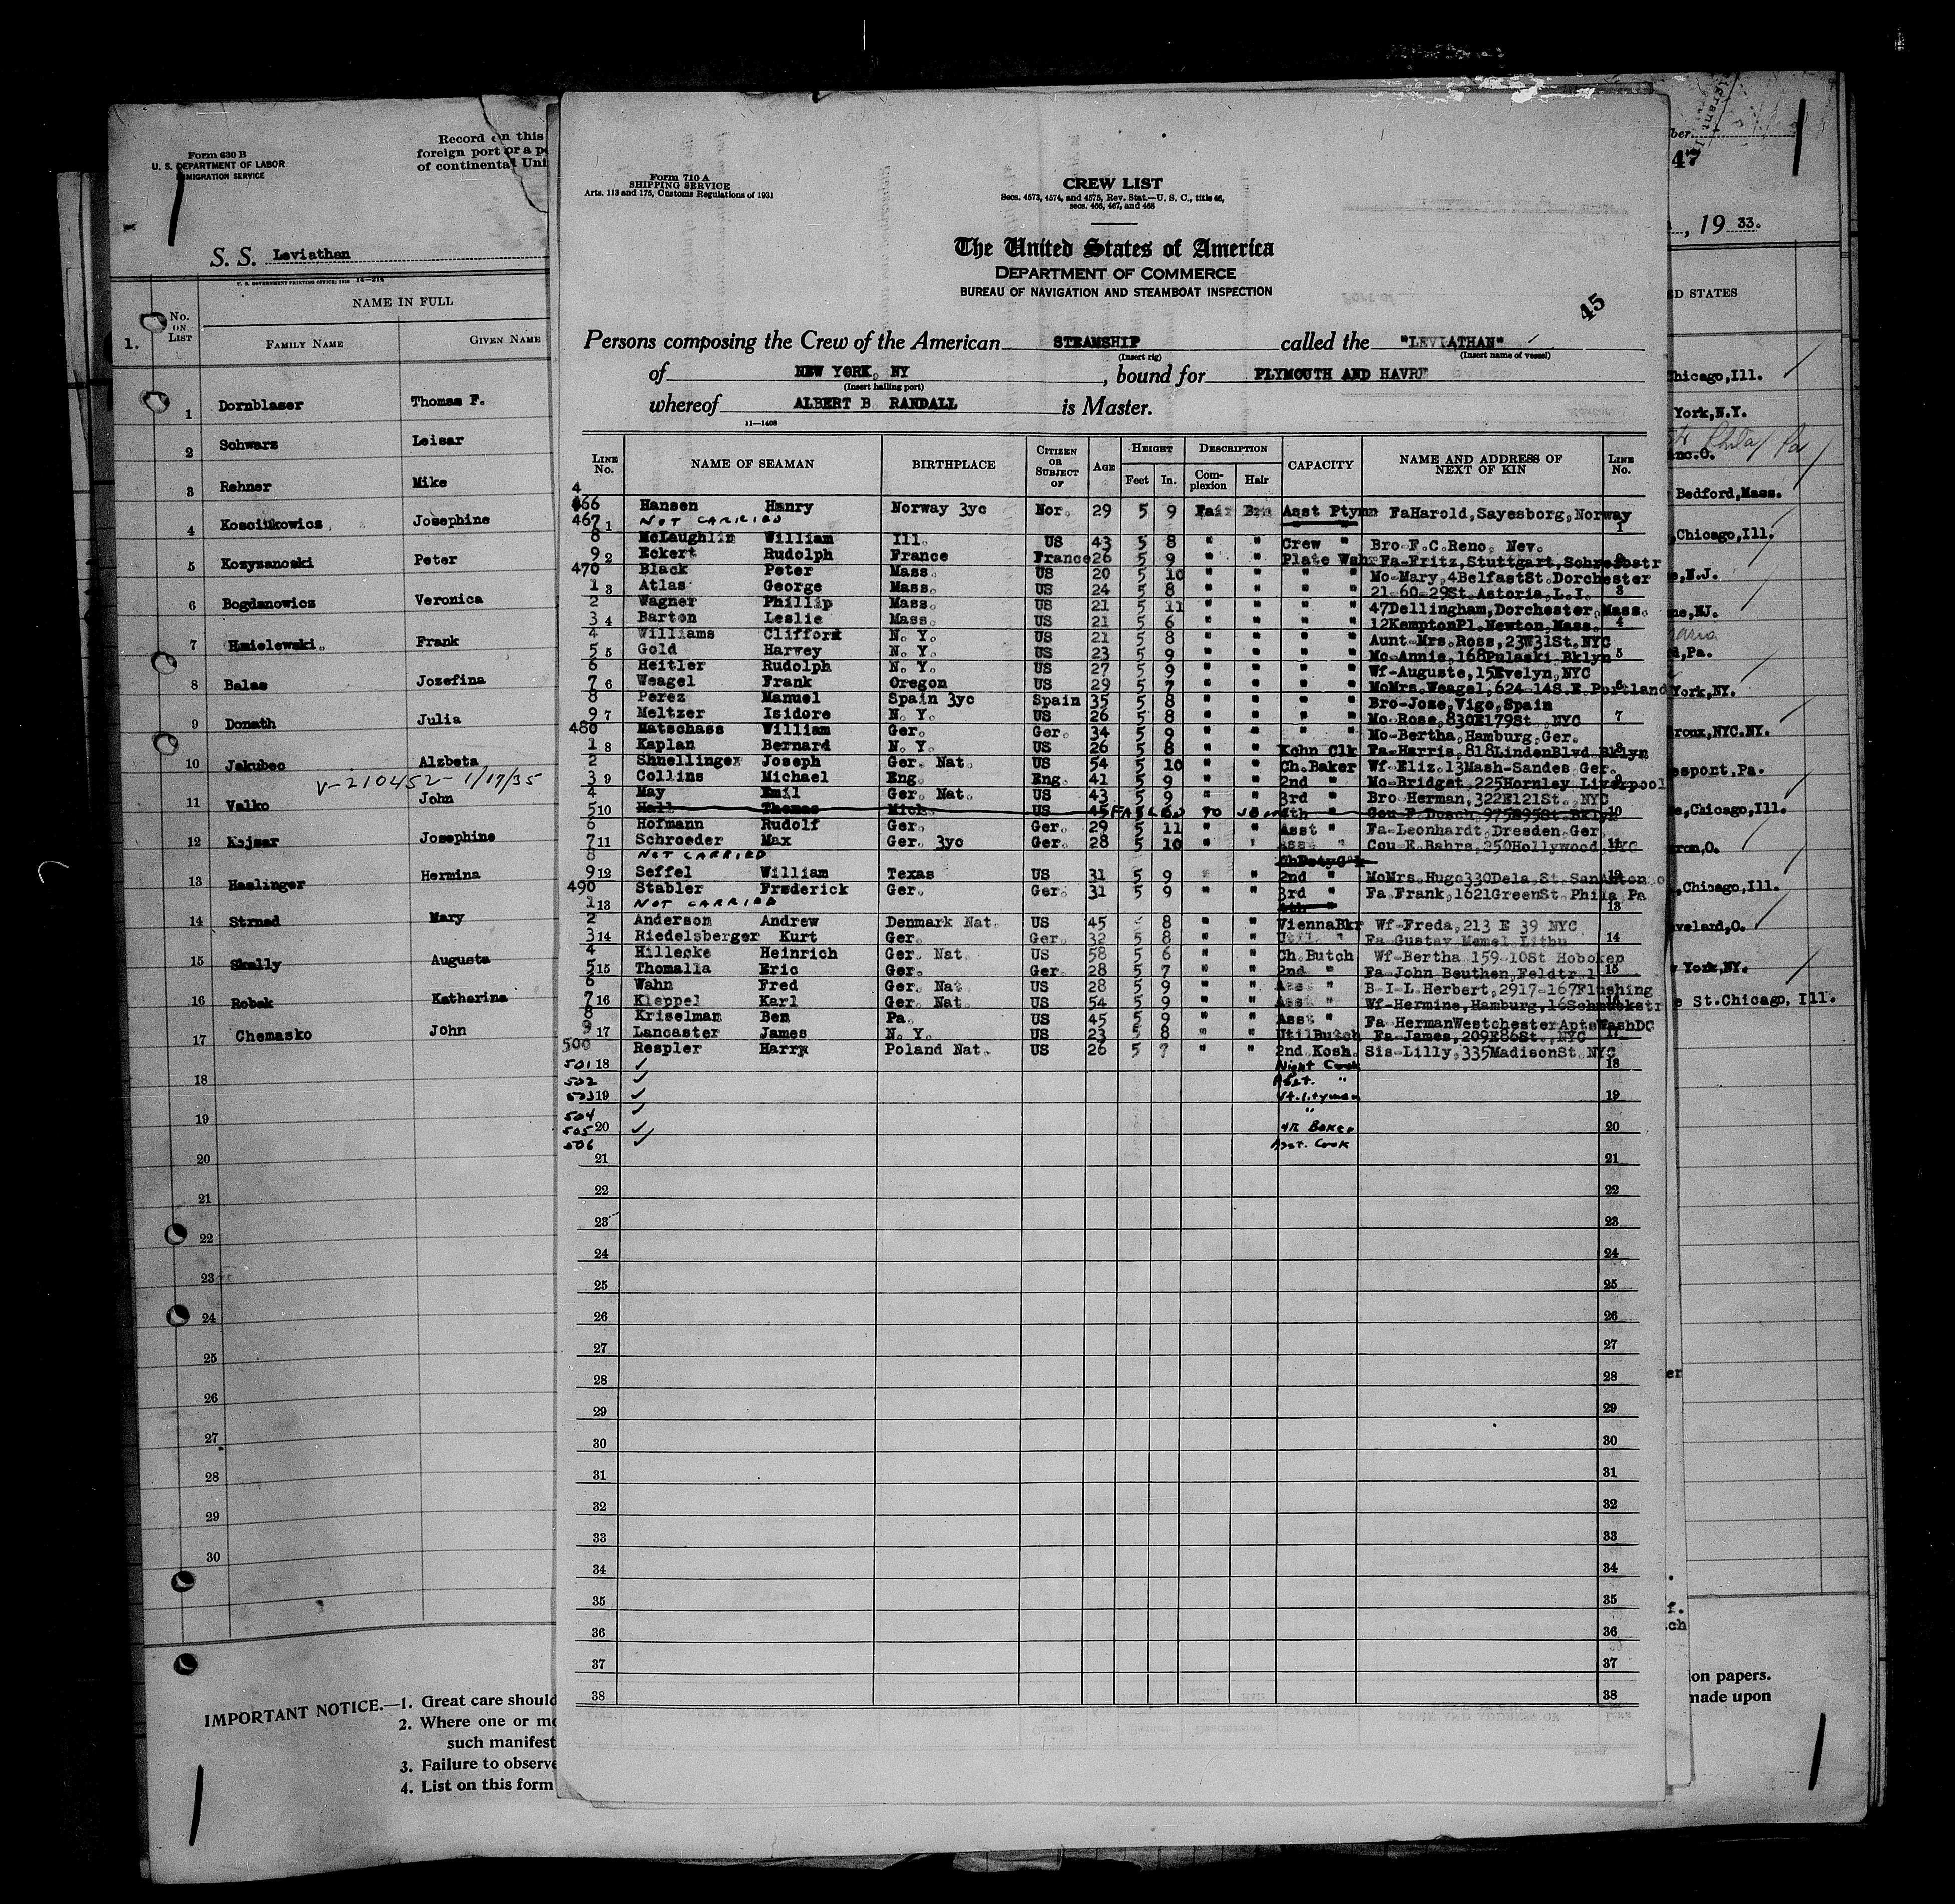 Form 630 B
U. S. DEPARTMENT OF LABOR
IMMIGRATION SERVICE
Record on this
foreign port or a
of continental Uni
S. S. Leviathan
U. S. GOVERNMENT PRINTING OFFICE: 1929 14—214
1.
No. ON LIST
NAME IN FULL
FAMILY NAME GIVEN NAME
1 Dornblaser Thomas F.
2 Schwarz Leisar
3 Rehner Mike
4 Kosciukowics Josephine
5 Kozyzanoski Peter
6 Bogdanowics Veronica
7 Hmielewski. Frank
8 Balas Jozefina
9 Donath Julia
10 Jakubec Alzbeta
V-210452-1/17/35
11 Valko John
12 Kajsar Josephine
13 Haslinger Hermina
14 Strnad Mary
15 Skelly Augusta
16 Robak Katherina
17 Chemasko John
18
19
20
21
22
23
24
25
26
27
28
29
30
IMPORTANT NOTICE.—1. Great care should
2. Where one or mo
such manifest
3. Failure to observe
4. List on this form
Form 710 A
SHIPPING SERVICE
Arts. 113 and 175, Customs Regulations of 1931
CREW LIST
Secs. 4573, 4574, and 4575, Rev. Stat.—U. S. C., title 46,
secs. 466, 467, and 468
The United States of America
DEPARTMENT OF COMMERCE
BUREAU OF NAVIGATION AND STEAMBOAT INSPECTION
45
Persons composing the Crew of the American STEAMSHIP called the "LEVIATHAN"
(Insert rig) (Insert name of vessel)
of NEW YORK, NY, bound for PLYMOUTH AND HAVRE
(Insert hailing port)
whereof ALBERT B RANDALL is Master.
11—1408
LINE No. NAME OF SEAMAN BIRTHPLACE CITIZEN OR SUBJECT OF AGE HEIGHT Feet In. DESCRIPTION Complexion Hair CAPACITY NAME AND ADDRESS OF NEXT OF KIN LINE No.
4
466 Hansen Henry Norway 3yc Nor. 29 5 9 Fair Brn Asst Ptymn FaHarold,Sayesborg,Norway
467 1 NOT CARRIED 1
8 McLaughlin William Ill. US 43 5 8 " " Crew " Bro F.C.Reno, Nev.
9 2 Eckert Rudolph France France 26 5 9 " " Plate Wshr Fa-Fritz,Stuttgart,Schreibstr
470 Black Peter Mass. US 20 5 10 " " " " Mo-Mary,4BelfastSt.Dorchester
1 3 Atlas George Mass. US 24 5 8 " " " " 21-60-29St.Astoria,L.I. 3
2 Wagner Phillip Mass. US 21 5 11 " " " " 47Dellingham,Dorchester,Mass.
3 4 Barton Leslie Mass. US 21 5 6 " " " " 12KemptonPl.Newton,Mass. 4
4 Williams Clifford N. Y. US 21 5 8 " " " " Aunt-Mrs.Ross,23W31St.NYC
5 5 Gold Harvey N. Y. US 23 5 9 " " " " Mo-Annie,168Pulaski Bklyn 5
6 Heitler Rudolph N. Y. US 27 5 9 " " " " Wf-Auguste,15Evelyn,NYC
7 6 Weagel Frank Oregon US 29 5 7 " " " " MoMrs.Weagel,624-14S.E.Portland 6
8 Perez Manuel Spain 3yc Spain 35 5 8 " " " " Bro-Joze,Vigo,Spain
9 7 Meltzer Isidore N. Y. US 26 5 8 " " " " Mo-Rose,830E179St.,NYC 7
480 Matschass William Ger. Ger. 34 5 9 " " " " Mo-Bertha,Hamburg,Ger.
1 8 Kaplan Bernard N. Y. US 26 5 8 " " Kchn Clk Fa-Harris,818LindenBlvd.Bklyn 8
2 Shnellinger Joseph Ger. Nat. US 54 5 10 " " Ch.Baker Wf-Eliz.13Mash-Sandes Ger.
3 9 Collins Michael Eng. Eng. 41 5 9 " " 2nd " Mo-Bridget,225Hornley Liverpool 9
4 May Emil Ger. Nat. US 43 5 9 " " 3rd " Bro Herman,322E121St.,NYC
5 10 Hall Thomas Mich. US 45 FAILED TO JOIN 4th " Cou-F.Dosch,975E95St.Bklyn 10
6 Hofmann Rudolf Ger. Ger. 29 5 11 " " Asst " Fa-Leonhardt,Dresden,Ger.
7 11 Schroeder Max Ger. 3yc Ger. 28 5 10 " " Asst " Cou K.Bahrs,250Hollywood,NYC 11
8 NOT CARRIED
9 12 Seffel William Texas US 31 5 9 " " 2nd " MoMrs.Hugo330Dela.St.SanAntonio 12
490 Stabler Frederick Ger. Ger. 31 5 9 " " 3rd " Fa.Frank,1621GreenSt.Phila Pa
1 13 NOT CARRIED 4th " 13
2 Anderson Andrew Denmark Nat. US 45 8 " " ViennaBkr Wf-Freda,213 E 39 NYC
3 14 Riedelsberger Kurt Ger. Ger. 32 5 8 " " Util. " Fa-Gustav Memel Lithu 14
4 Hillecke Heinrich Ger. Nat. US 58 5 6 " " Ch.Butch Wf-Bertha 159-10St Hoboken
5 15 Thomalla Eric Ger. Ger. 28 5 7 " " 2nd " Fa-John Beuthen,Feldtr.1 15
6 Wahn Fred Ger. Nat US 28 5 9 " " Ass " B-I-L.Herbert,2917-167Flushing
7 16 Klappel Karl Ger. Nat. US 54 5 9 " " Asst " Wf-Hermine,Hamburg,16Schmuckstr 16
8 Kriselman Ben Pa. US 45 5 9 " " Asst " Fa-HermanWestchesterAptsWashDC
9 17 Lancaster James N. Y. US 23 5 8 " " UtilButch Fa-James,209E86St.,NYC 17
500 Respler Harry Poland Nat. US 26 5 7 " " 2nd Kosh. Sis-Lilly,335MadisonSt.NYC
501 18 ✓ Night Cook 18
502 ✓ Asst. "
503 19 ✓ Utilityman 19
504 ✓ "
505 20 ✓ 4th Baker 20
506 ✓ Asst. Cook
21 21
22 22
23 23
24 24
25 25
26 26
27 27
28 28
29 29
30 30
31 31
32 32
33 33
34 34
35 35
36 36
37 37
38 38
ber.
47
, 19 33.
D STATES
hicago,Ill.
York,N.Y.
Phila Pa
nc.O.
Bedford,Mass.
,Chicago,Ill.
,N.J.
ne,NJ.
d,Pa.
York,NY.
ronx,NYC.NY.
espont,Pa.
e,Chicago,Ill.
ron,O.
,Chicago,Ill.
veland,O.
York,NY.
e St.Chicago, Ill.
er
f.
ch
on papers.
made upon